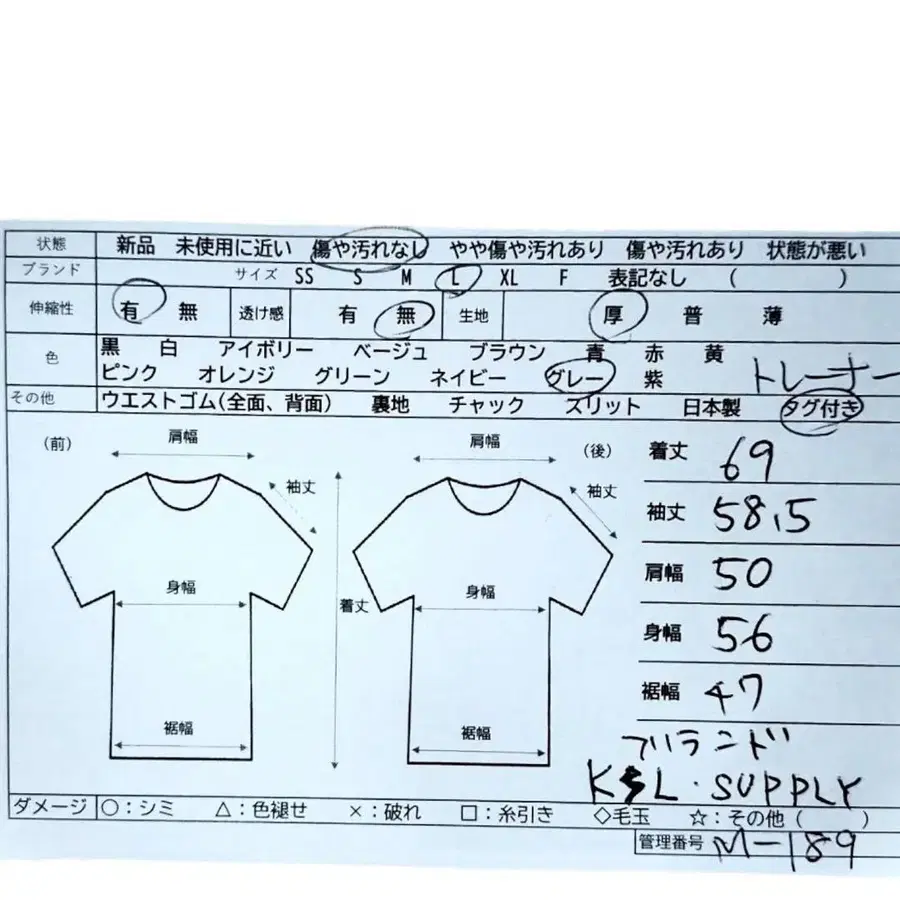 状態 新品 未使用に近い 傷や汚れなし やや傷や汚れあり 傷や汚れあり 状態が悪い
ブランド サイズ SS S M L XL F 表記なし ( )
伸縮性 有 無 透け感 有 無 生地 厚 普 薄
色 黒 白 アイボリー ベージュ ブラウン 青 赤 黄
ピンク オレンジ グリーン ネイビー グレー 紫 トレーナー
その他 ウエストゴム(全面、背面) 裏地 チャック スリット 日本製 タグ付き
(前) 肩幅 肩幅 (後) 着丈 69
袖丈 袖丈 袖丈 58.5
肩幅 50
身幅 着丈 身幅 身幅 56
裾幅 47
裾幅 裾幅 ブランド
KSL・SUPPLY
ダメージ ○:シミ △:色褪せ ×:破れ □:糸引き ◇毛玉 ☆:その他( )
管理番号 M-189